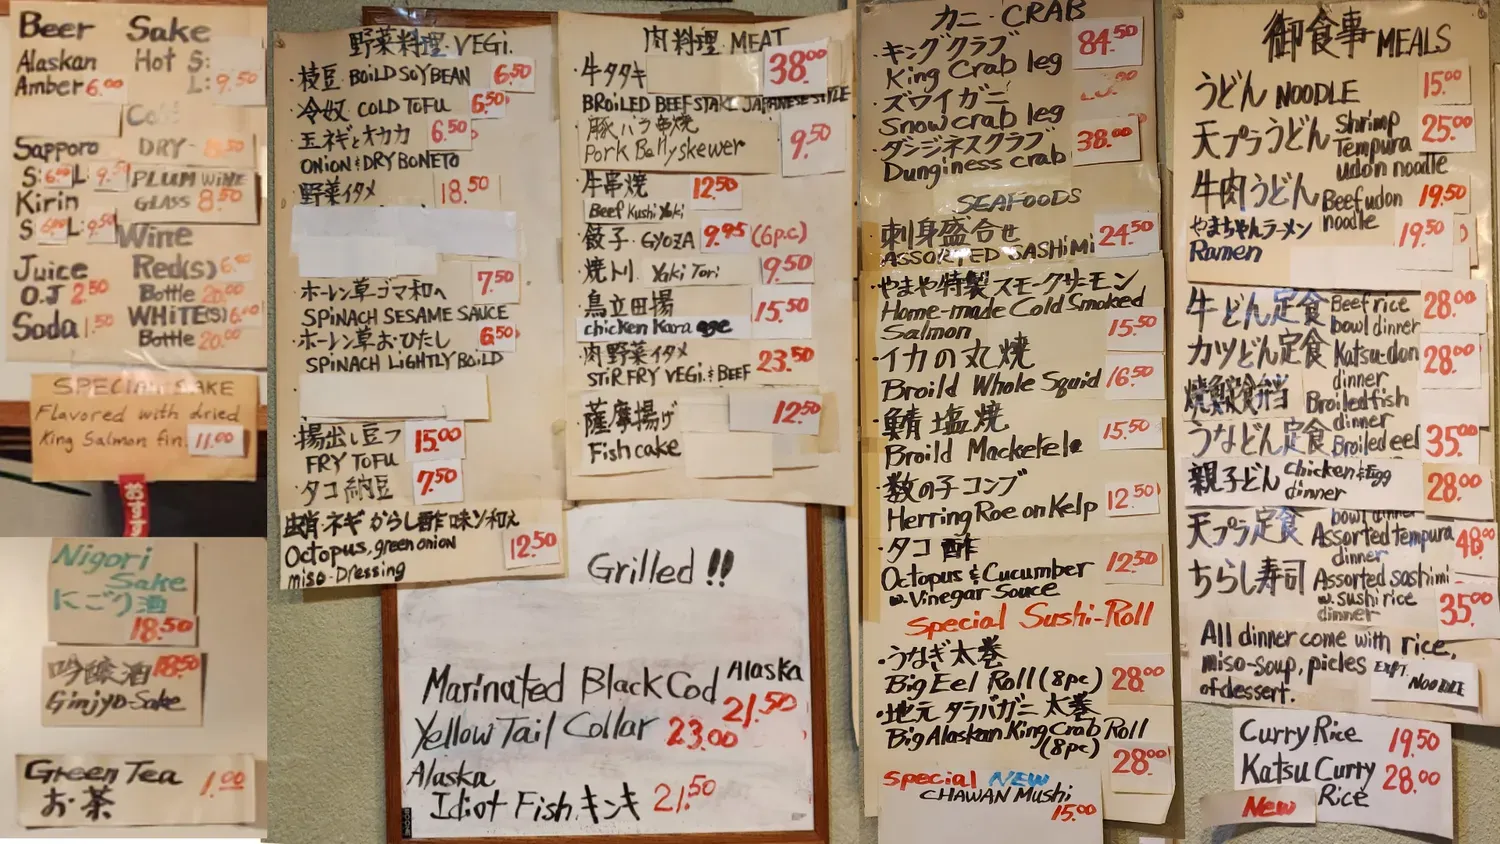 Beer
Alaskan
Amber 6.00
Sapporo
S: 6.00 L: 9.50
Kirin
S 6.00 L: 9.50
Juice
O.J 2.50
Soda 1.50
Sake
Hot S:
L: 9.50
Cold
DRY- 8.50
PLUM WINE
GLASS 8.50
Wine
Red(s) 6.00
Bottle 20.00
WHITE(S) 6.00
Bottle 20.00
SPECIAL SAKE
Flavored with dried
King Salmon fin. 11.00
おすす
Nigori
Sake
にごり酒
18.50
吟醸酒 18.50
Ginjyo-Sake
Green Tea
お・茶 1.00
野菜料理・VEGi.
・枝豆・BOiLD SOYBEAN 6.50
・冷奴 COLD TOFU 6.50
・玉ネギとオカカ 6.50
ONiON & DRY BONETO
・野菜イタメ 18.50
7.50
・ホーレン草ゴマ和へ
SPiNACH SESAME SAUCE
・ホーレン草お・ひたし 6.50
SPiNACH LiGHTLY BOiLD
・揚出し豆フ 15.00
FRY TOFU
・タコ納豆 7.50
・蛸・ネギ からし酢味ソ和え
Octopus, green onion 12.50
miso-Dressing
肉料理・MEAT
・牛タタキ 38.00
BROiLED BEEFSTAKE JAPANESE STYLE
・豚バラ串焼
Pork Bellyskewer 9.50
・牛串焼 12.50
Beef Kushi Yaki
・餃子・GYOZA 9.95 (6p.c)
・焼トリ Yaki Tori 9.50
・鳥立田揚 15.50
chicken Kara age
・肉野菜イタメ
STiR FRY VEGi. & BEEF 23.50
・薩摩揚げ 12.50
Fish cake
Grilled !!
Marinated Black Cod Alaska
21.50
Yellow Tail Collar 23.00
Alaska
Idiot Fish キンキ 21.50
カニ・CRAB
・キングクラブ 84.50
King Crab leg
・ズワイガニ
Snow crab leg
・ダンジネスクラブ 38.00
Dunginess crab
SEAFOODS
・刺身盛合せ 24.50
ASSORTED SASHiMi
・やまや特製 スモークサーモン
Home-made Cold Smoked
Salmon 15.50
・イカの丸焼
Broild Whole Squid 16.50
・鯖塩焼
Broild Mackerel 15.50
・数の子コンブ
Herring Roe on Kelp 12.50
・タコ酢
Octopus & Cucumber 12.50
w. Vinegar Sauce
Special Sushi-Roll
・うなぎ太巻
Big Eel Roll (8pc) 28.00
・地元 タラバガニ 太巻
Big Alaskan King Crab Roll
(8pc) 28.00
Special NEW
CHAWAN Mushi
15.00
御食事 MEALS
うどん NOODLE 15.00
天プラうどん Shrimp Tempura udon noodle 25.00
牛肉うどん Beef udon noodle 19.50
やまちゃんラーメン 19.50
Ramen
牛どん定食 Beef rice bowl dinner 28.00
カツどん定食 Katsu-don dinner 28.00
焼魚定食 Broiled fish dinner
うなどん定食 Broiled eel 35.00
親子どん chicken & Egg dinner 28.00
bowl dinner
天プラ定食 Assorted tempura dinner 48.00
ちらし寿司 Assorted sashimi w. sushi rice dinner 35.00
All dinner come with rice,
miso-soup, pickles EXPT. NOODLE
of dessert.
Curry Rice 19.50
Katsu Curry Rice 28.00
New